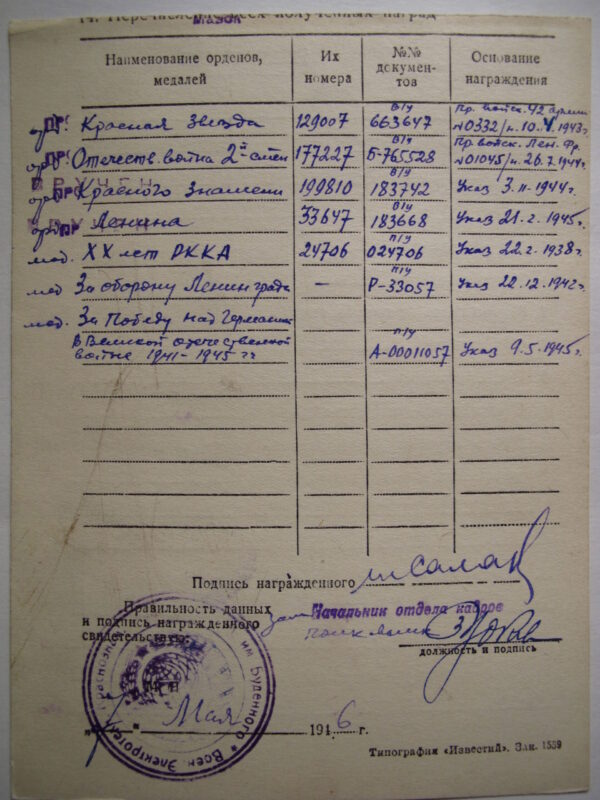 14. Перечисление всех полученных наград
Мазок
Наименование орденов, медалей
Их номера
№№ докумен-тов
Основание награждения
орд. Красная Звезда 129007 в/у 663647 Пр. войск. 42 армии №0332/н. 10.V.1943г.
орд. Отечеств. война 2й степ 177227 в/у Б-765528 Пр. войск. Лен. Фр. №01045/н. 26.7.1944г.
орд. Красного Знамени 199810 в/у 183742 Указ 3.11-1944г.
орд. Ленина 33647 в/у 183668 Указ 21.2.1945г.
мед. XX лет РККА 24706 п/у 024706 Указ 22.2.1938г.
мед За оборону Ленинграда – п/у Р-33057 Указ 22.12.1942г.
мед. За Победу над Германией
в Великой отечественной
войне 1941-1945 гг п/у А-00011057 Указ 9.5.1945г.
Подпись награжденного
Правильность данных
и подпись награжденного
свидетельствую:
Начальник отдела кадров
должность и подпись
им Буденного * Воен. Электротех
Мая 1946 г.
Типография «Известий». Зак. 1539